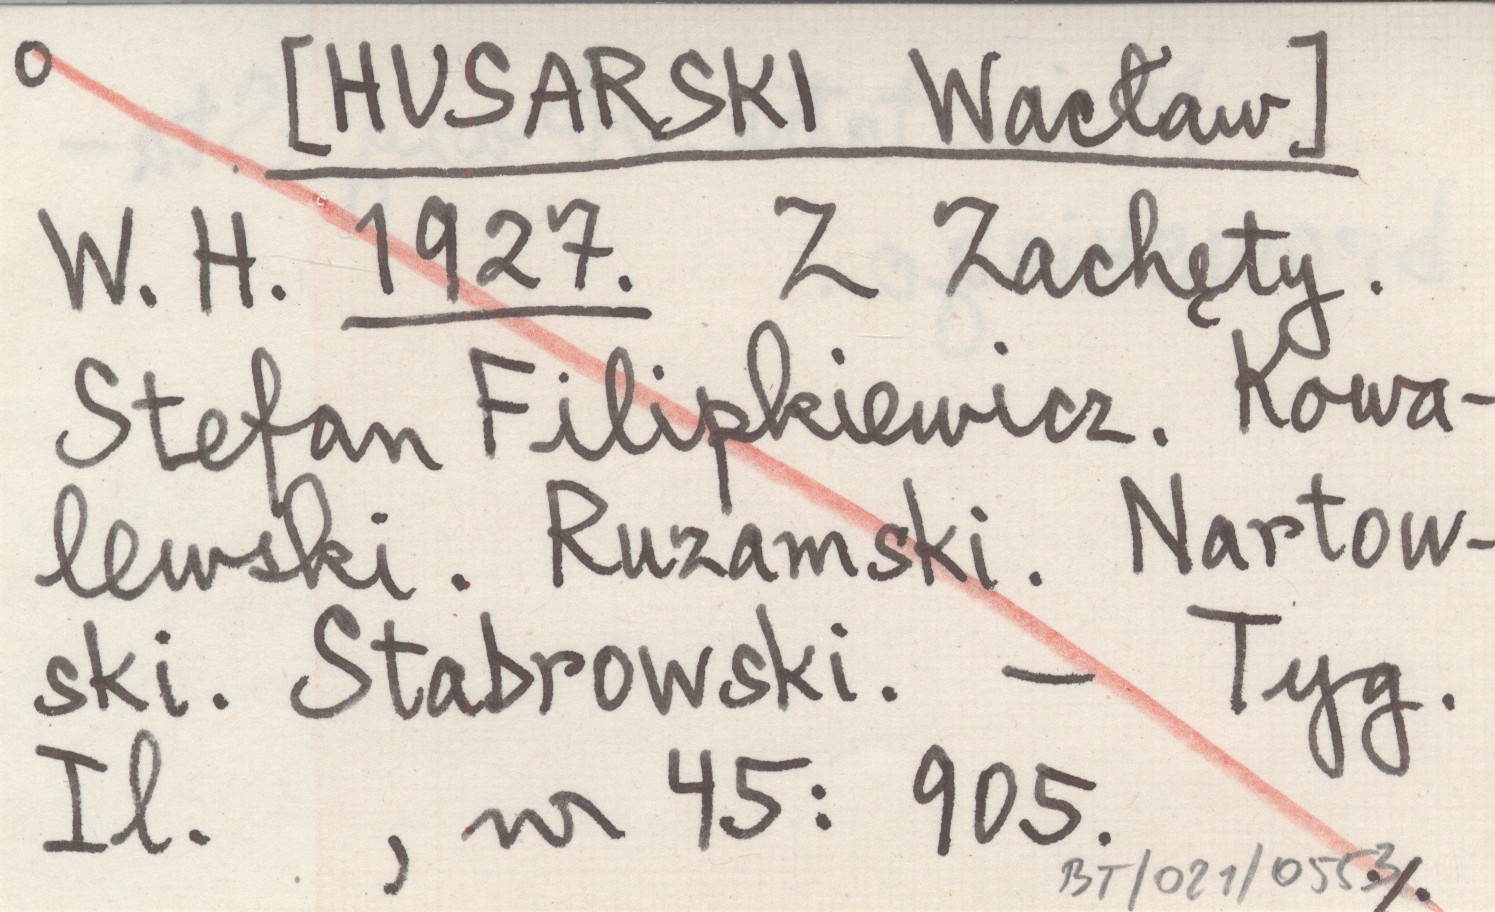 o [HUSARSKI Wacław]
W. H. 1927. Z Zachęty.
Stefan Filipkiewicz. Kowa-
lewski. Ruzamski. Nartow-
ski. Stabrowski. — Tyg.
Il. , nr 45: 905.
BT/021/0553 ./.